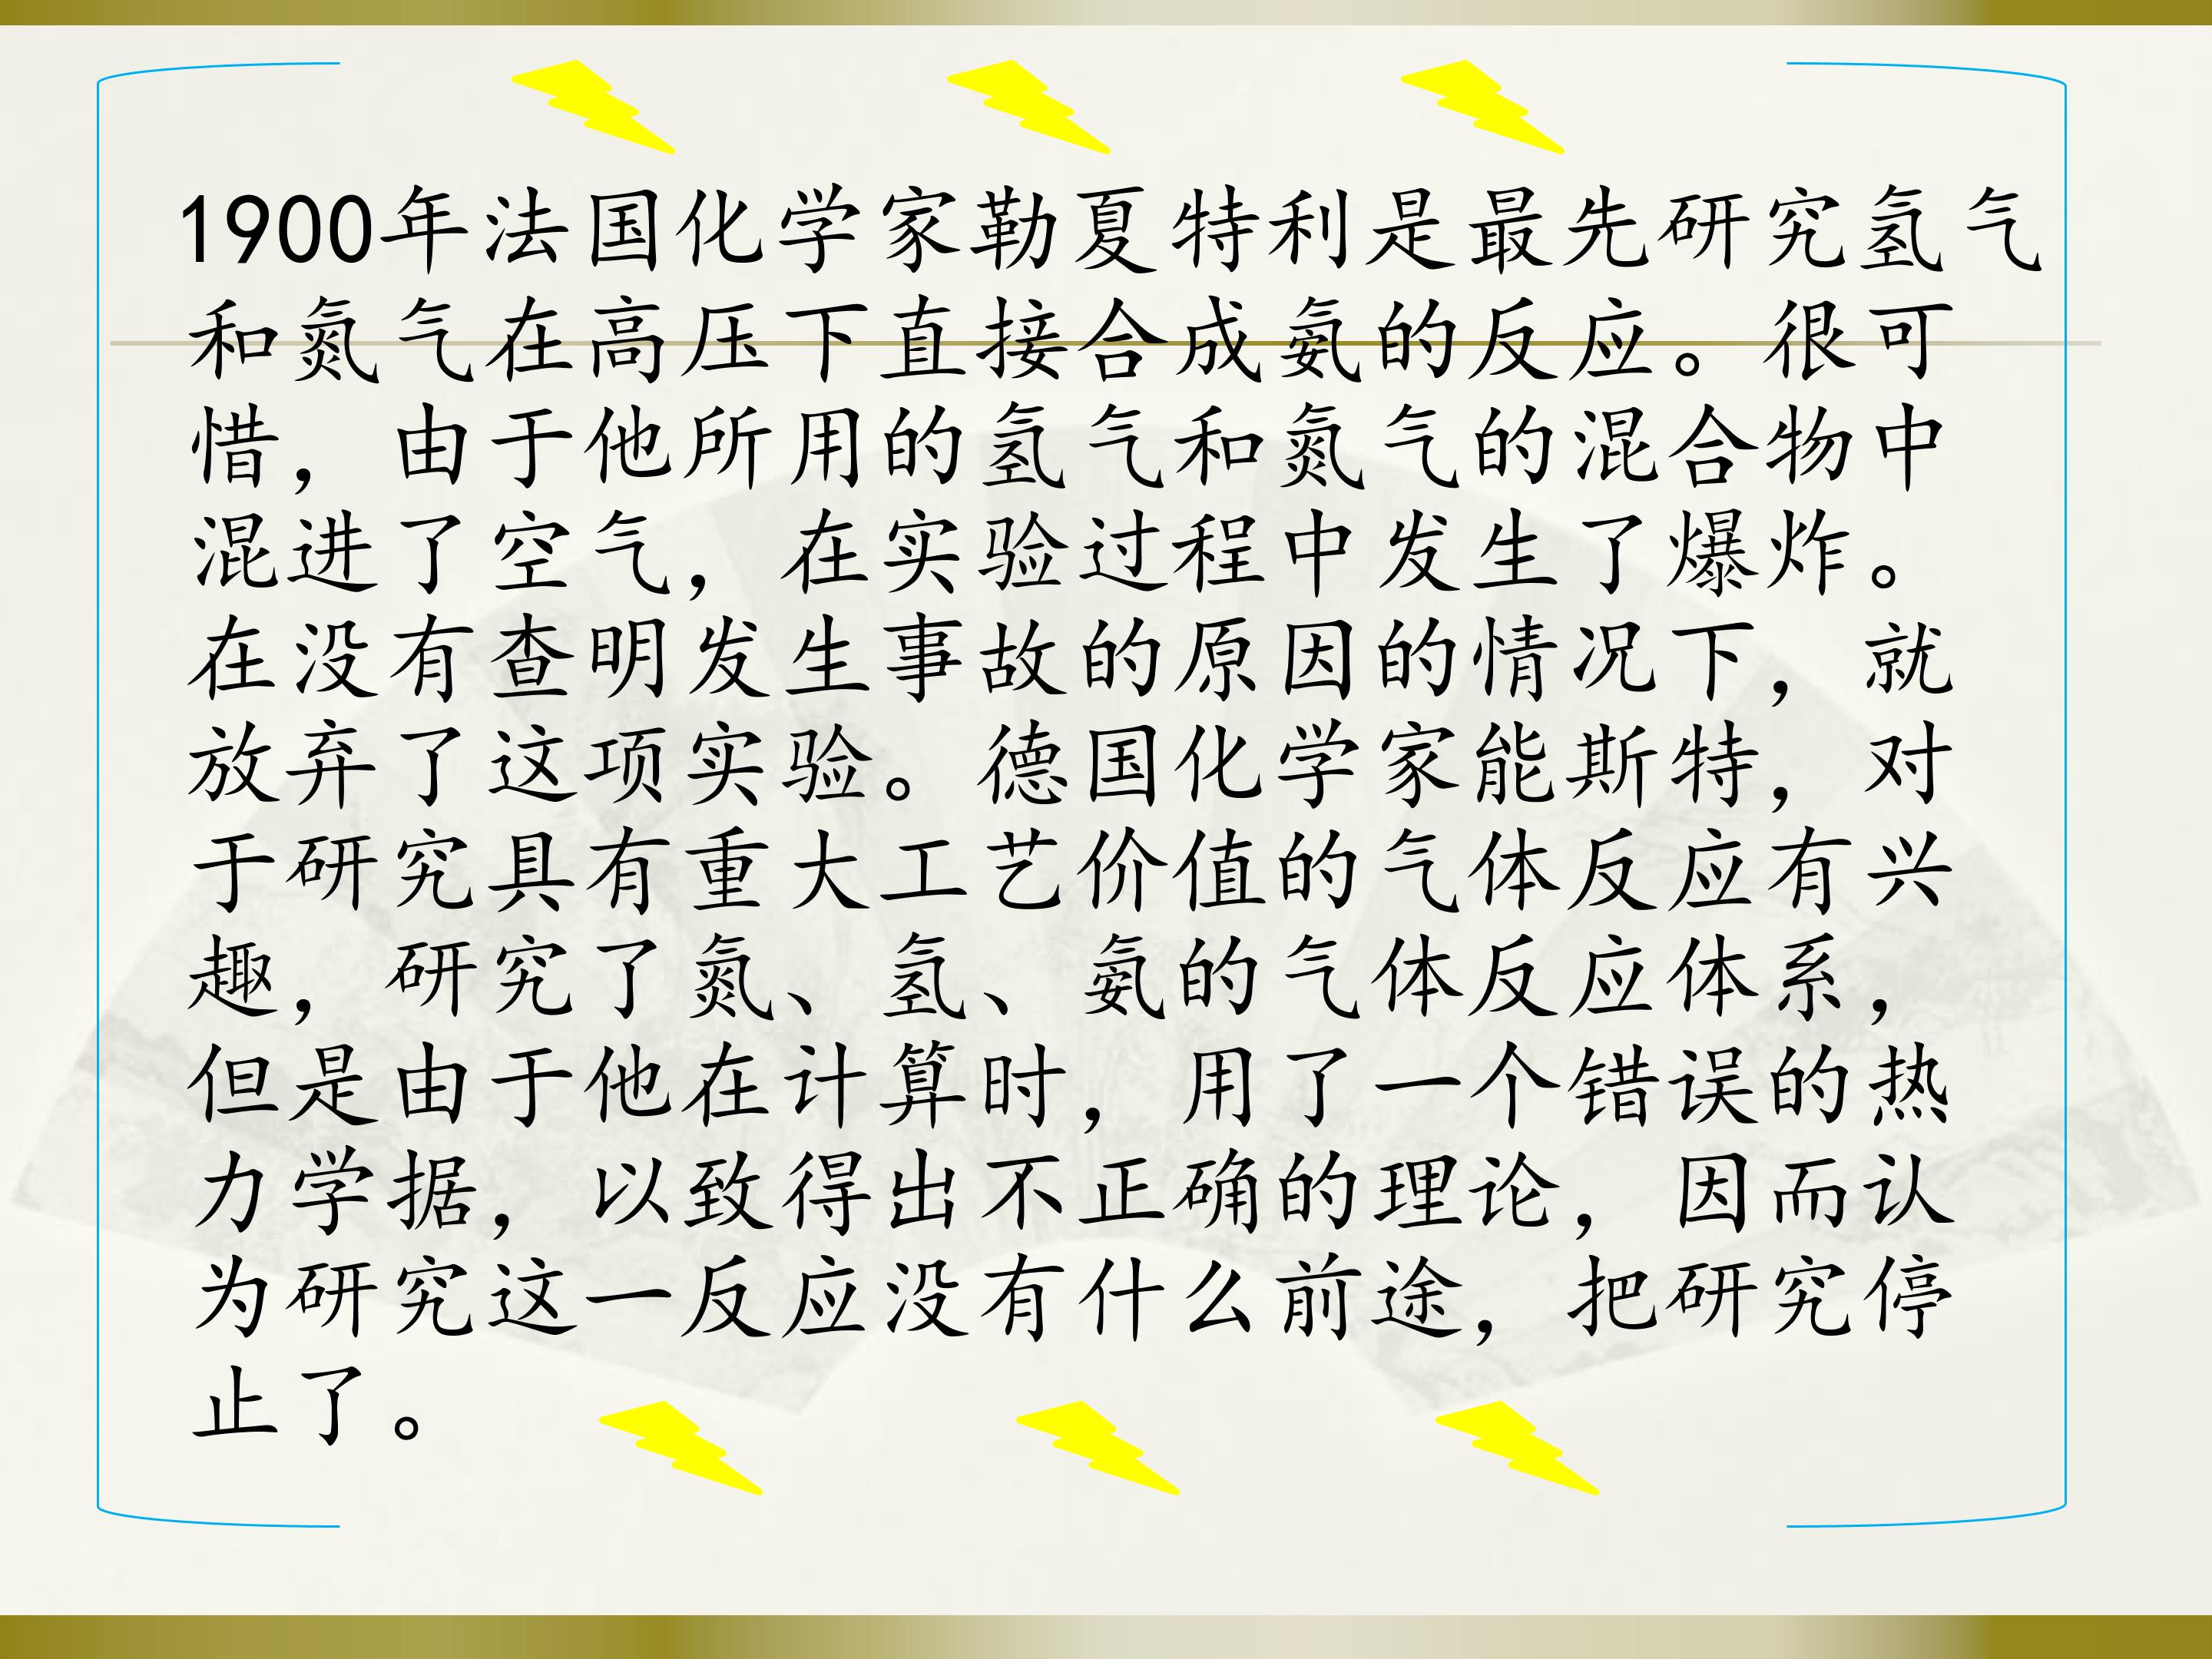 1900年法国化学家勒夏特利是最先研究氢气
和氮气在高压下直接合成氨的反应。很可
惜，由于他所用的氢气和氮气的混合物中
混进了空气，在实验过程中发生了爆炸。
在没有查明发生事故的原因的情况下，就
放弃了这项实验。德国化学家能斯特，对
于研究具有重大工艺价值的气体反应有兴
趣，研究了氮、氢、氨的气体反应体系，
但是由于他在计算时，用了一个错误的热
力学据，以致得出不正确的理论，因而认
为研究这一反应没有什么前途，把研究停
止了。